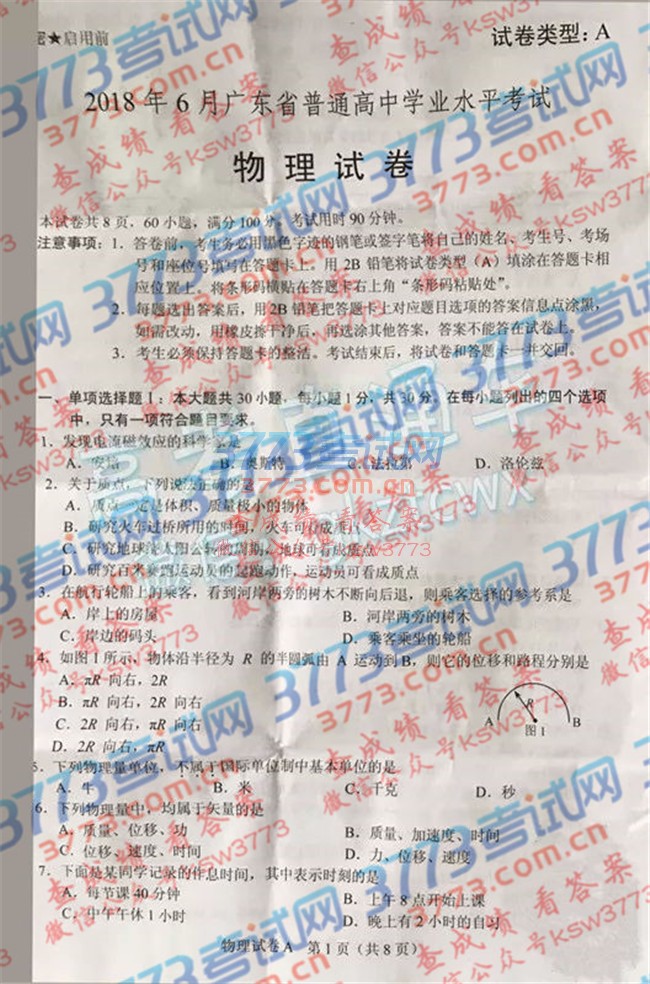 密★启用前
试卷类型：A
2018 年 6 月广东省普通高中学业水平考试
物 理 试 卷
本试卷共 8 页，60 小题，满分 100 分。考试用时 90 分钟。
注意事项：1．答卷前，考生务必用黑色字迹的钢笔或签字笔将自己的姓名、考生号、考场
号和座位号填写在答题卡上。用 2B 铅笔将试卷类型（A）填涂在答题卡相
应位置上。将条形码横贴在答题卡右上角“条形码粘贴处”。
2．每题选出答案后，用 2B 铅笔把答题卡上对应题目选项的答案信息点涂黑，
如需改动，用橡皮擦干净后，再选涂其他答案，答案不能答在试卷上。
3．考生必须保持答题卡的整洁。考试结束后，将试卷和答题卡一并交回。
一、单项选择题 I：本大题共 30 小题，每小题 1 分，共 30 分。在每小题列出的四个选项
中，只有一项符合题目要求。
1、发现电流磁效应的科学家是
A．安培 B．奥斯特 C．法拉第 D．洛伦兹
2．关于质点，下列说法正确的是
A．质点一定是体积、质量极小的物体
B．研究火车过桥所用的时间，火车可看成质点
C．研究地球绕太阳公转的周期，地球可看成质点
D．研究百米赛跑运动员的起跑动作，运动员可看成质点
3．在航行轮船上的乘客，看到河岸两旁的树木不断向后退，则乘客选择的参考系是
A．岸上的房屋 B．河岸两旁的树木
C．岸边的码头 D．乘客乘坐的轮船
4．如图 1 所示，物体沿半径为 R 的半圆弧由 A 运动到 B，则它的位移和路程分别是
A．πR 向右，2R
B．πR 向右，πR
C．2R 向右，2R
D．2R 向右，πR
A R B
图 1
5．下列物理量单位，不属于国际单位制中基本单位的是
A．牛 B．米 C．千克 D．秒
6．下列物理量中，均属于矢量的是
A．质量、位移、功 B．质量、加速度、时间
C．位移、速度、时间 D．力、位移、速度
7．下面是某同学记录的作息时间，其中表示时刻的是
A．每节课 40 分钟 B．上午 8 点开始上课
C．中午午休 1 小时 D．晚上有 2 小时的自习
物理试卷 A 第 1 页（共 8 页）
3773考试网
3773.com.cn
查成绩 看答案
微信公众号ksw3773
高考直通车